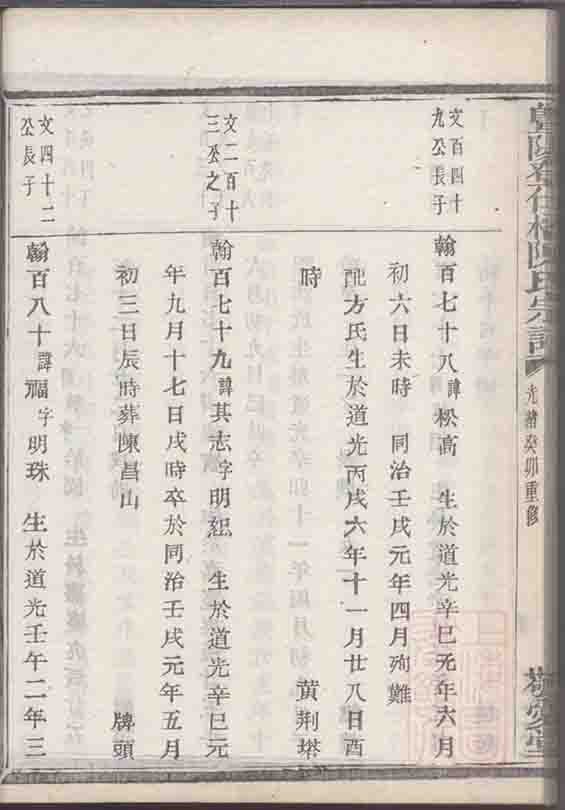 陳氏宗譜
光緒癸卯重修
文百四十
九公長子
翰百七十八諱松高 生於道光辛巳元年六月
初六日未時 同治壬戌元年四月殉難
配方氏生於道光丙戌六年十一月廿八日酉
時 黃荆塔
文二百十
三公之子
翰百七十九諱其志字明 生於道光辛巳元
年九月十七日戌時卒於同治壬戌元年五月
初三日辰時葬陳昌山 牌頭
文四十二
公長子
翰百八十諱福字明珠 生於道光壬午二年三